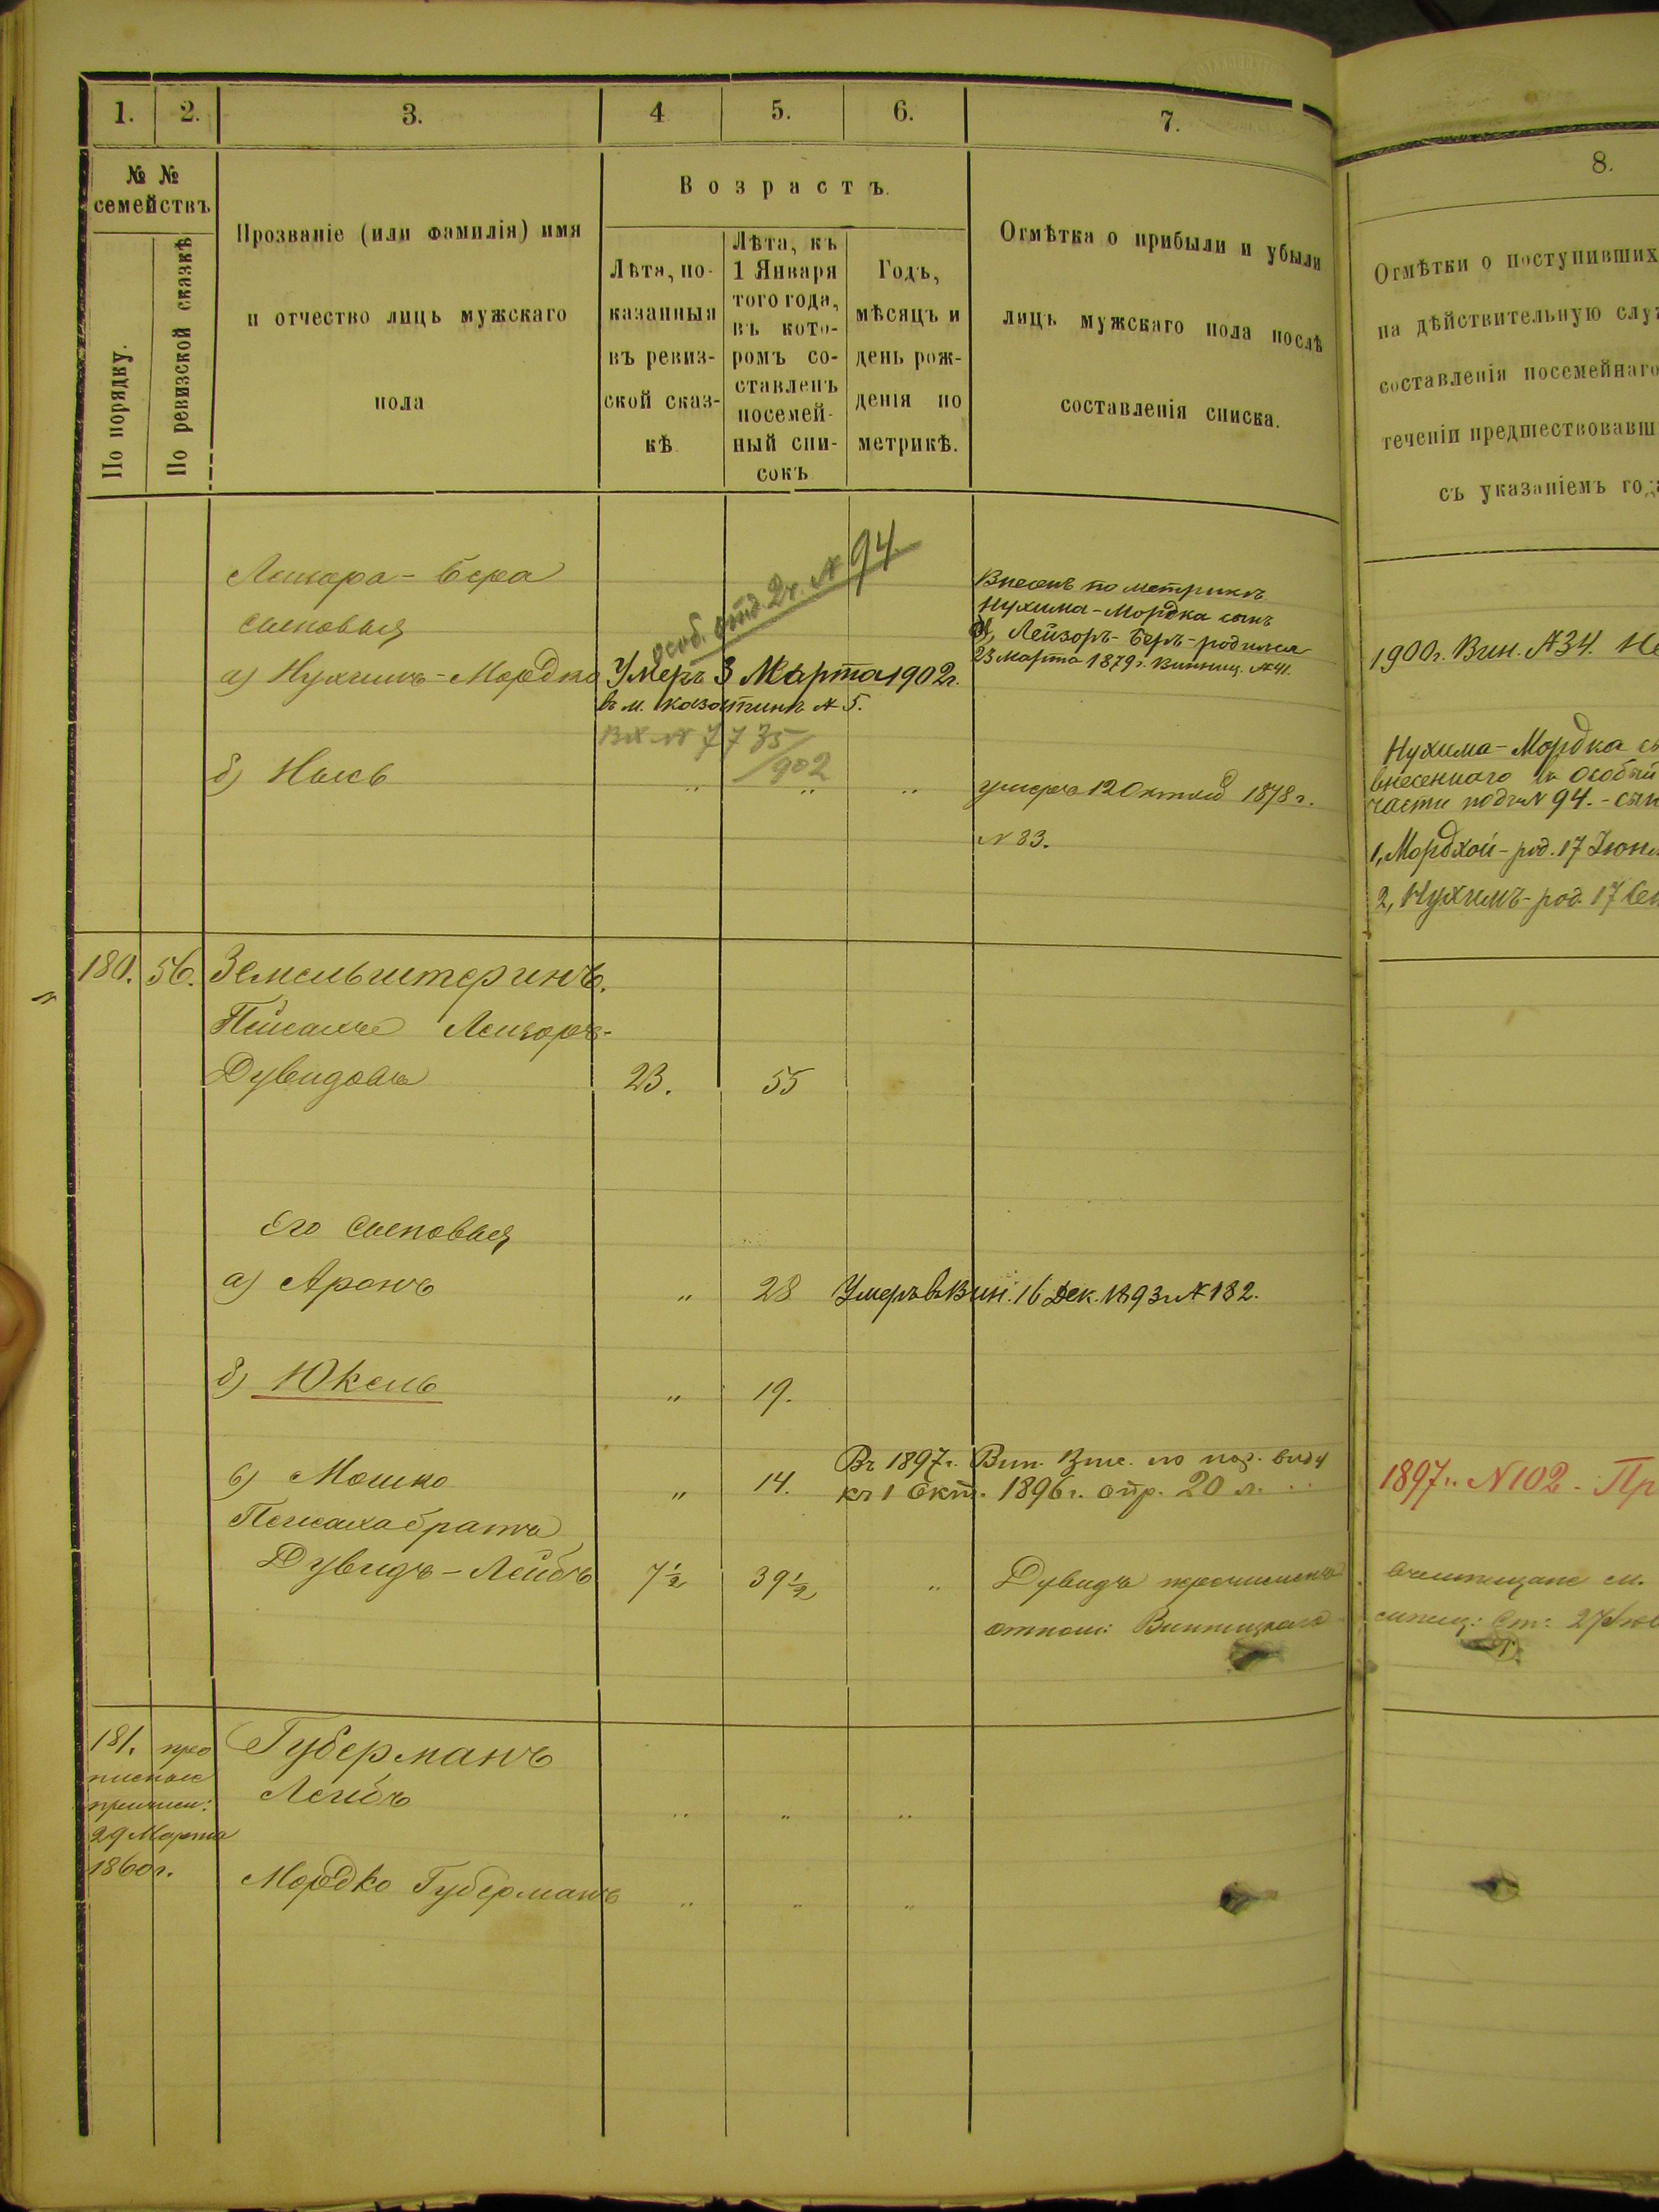 1. 2. 3. 4 5. 6. 7. 8.
№ № семействъ
По порядку.
По ревизской сказкѣ
Прозваніе (или фамилія) имя
и отчество лицъ мужскаго
пола
Возрастъ.
Лѣта, по-
казанныя
въ ревиз-
ской сказ-
кѣ
Лѣта, къ
1 Января
того года,
въ кото-
ромъ со-
ставленъ
посемей-
ный спи-
сокъ
Годъ,
мѣсяцъ и
день рож-
денія по
метрикѣ.
Отмѣтка о прибыли и убыли
лицъ мужскаго пола послѣ
составленія списка.
Отмѣтки о поступивших
на дѣйствительную слу
составленія посемейнаго
теченіи предшествовавш
съ указаніемъ го
Лейзора-Бера
сыновья
особ. отд. 2ч. № 94
а) Нухимъ-Мордко Умеръ 3 Марта 1902г.
въ м. Казатинѣ № 5.
Вх № 7735/902
Внесенъ по метрикѣ
Нухима-Мордка сынъ
Лейзоръ-Беръ-родился
23 Марта 1879г. Винниц. №41.
1900г. Вин. №34.
б) " " " умеръ 12 1878г.
№ 83.
Нухима-Мордка
внесеннаго въ особый
части подъ № 94. -
1, Мордхой - род. 17 Іюн
2, Нухимъ - род. 17
180. 56. Земельштеринъ.
Пейсахъ Лейзоръ-
Дувидовъ 23. 55
Его сыновья
а) Аронъ " 28 Умеръ въ Вин. 16 Дек. 1893г №182.
б) Юкель " 19.
в) Мошко " 14. Въ 1897г. Вин. по виду
къ 1 Окт. 1896г. опр. 20 л.
1897г. №102 - Пр
Пейсаха братъ
Дувидъ-Лейбъ 7½ 39½ " Дувидъ перечисленъ
отнош: Винницкаго
181.
29 Марта
1860г.
Губерманъ
Лейбъ " " "
Мордко Губерманъ " " "